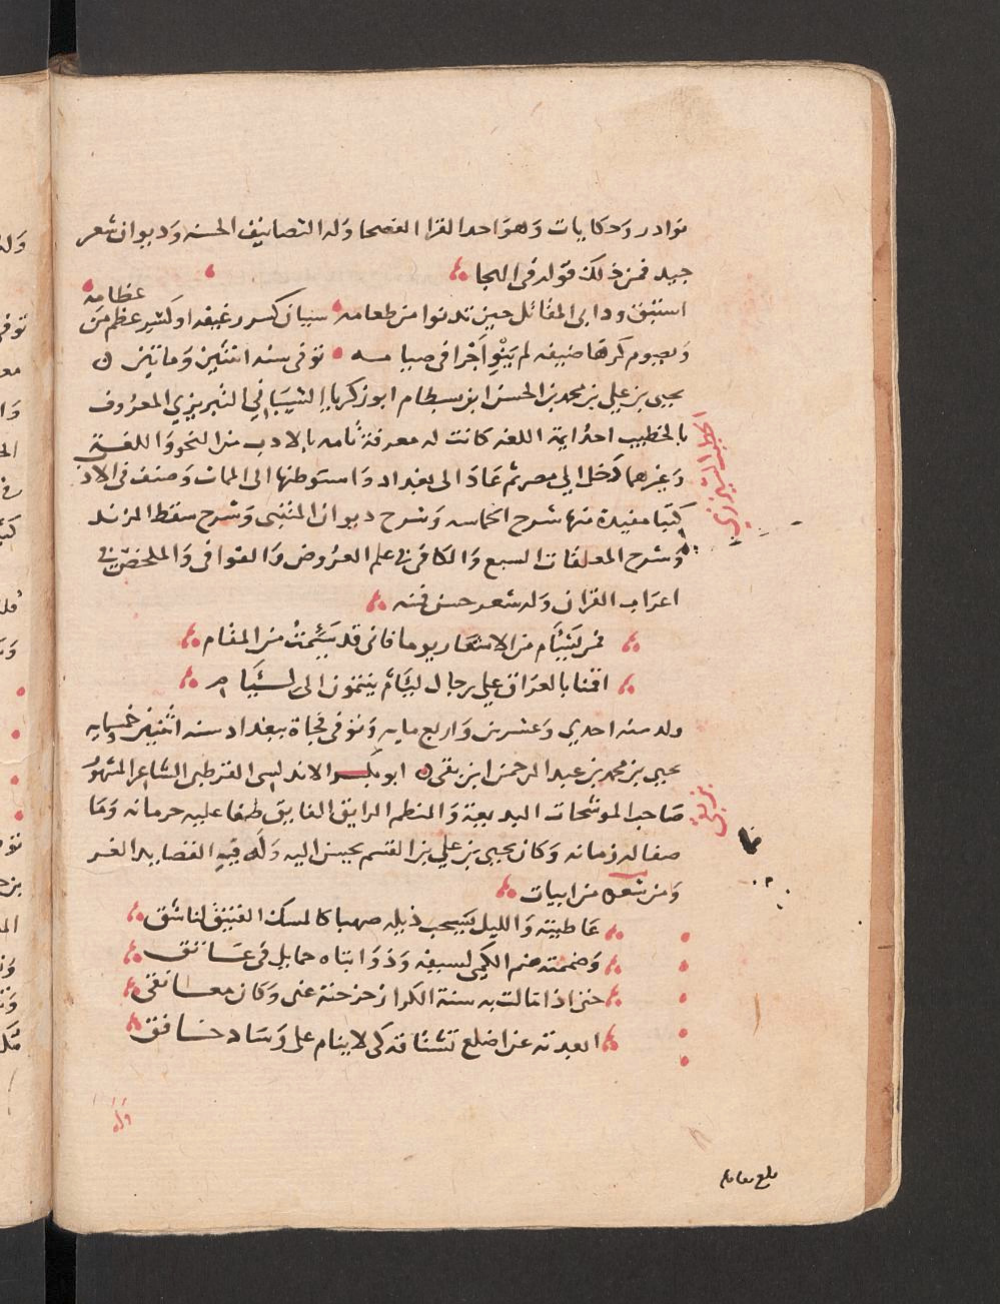 نوادر وحكايات وهو احد القرا الفصحا وله التصانيف الحسنه وديوان شعر
جيد فمن ذلك قوله في الهجا
عظامه
استبق ود ابى المقاتل حين تدنوا من طعامه سيان كسر رغيفه او كسر عظم من
ويصوم كرها ضيفه لم ينو اجرا في صيامه توفى سنه اثنين وماتين
يحيى بن علي بن محمد بن الحسن ابن بسطام ابو زكريا الشيباني التبريزي المعروف
بالخطيب احد ايمة اللغه كانت له معرفة تامه بالادب من النحو واللغة
وغيرهما دخل الي مصر ثم عاد الى بغداد واستوطنها الى الممات وصنف في الادب
كتبا مفيدة منها شرح الحماسه وشرح ديوان المتنبى وشرح سقط الزند
وشرح المعلقات السبع والكافي في علم العروض والقوافى والملخص في
اعراب القران وله شعر حسن فمنه
فمن يسأم من الاسفار يوما فانى قد سئمت من المقام
اقمنا بالعراق علي رجال ليام ينتمون الى ليام
ولد سنه احدي وعشرين واربع مايه وتوفى فجاة ببغداد سنه اثنين خمسمايه
يحيى بن محمد بن عبد الرحمن ابن بقى ابو بكر الاندلسى القرطبى الشاعر المشهور
صاحب الموشحات البديعة والنظم الرايق الفايق طفا عليه حرمانه وما
صفا له زمانه وكان يحيى بن علي بن القسم يحسن اليه وله فيه القصايد الغر
ومن شعره من ابيات
عاطيته والليل يسحب ذيله صهبا كالمسك الفتيق لناشق
وضممته ضم الكمى لسيفه وذوابتاه حمايل في عاتق
حتى اذا مالت به سنة الكرا زحزحته عنى وكان معانقى
ابعدته عن اضلع تشتاقه كى لا ينام على وساد خافق
الخطيب التبريزي
بن بقي
وله
بلغ مقابلة